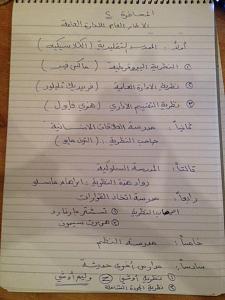 المحاضرة 2
الاطار العام للادارة العامة
أولاً: المدرسة التقليدية (الكلاسيكية)
① النظرية البيروقراطية (ماكس فيبر)
② نظرية الادارة العلمية (فريدريك تايلور)
③ نظرية التقسيم الاداري (هنري فايول)
ثانياً: مدرسة العلاقات الانسانية
صاحب النظرية: التون مايو
ثالثاً: المدرسة السلوكية
رواد هذه النظرية: ابراهام ماسلو
رابعاً: مدرسة اتخاذ القرارات
اصحاب النظرية ① تشستر بارنارد
② هربرت سيمون
خامساً: مدرسة النظم
سادساً: مدارس أخرى حديثة
① نظرية أوشي Z وليم أوشي
② نظرية الجودة الشاملة